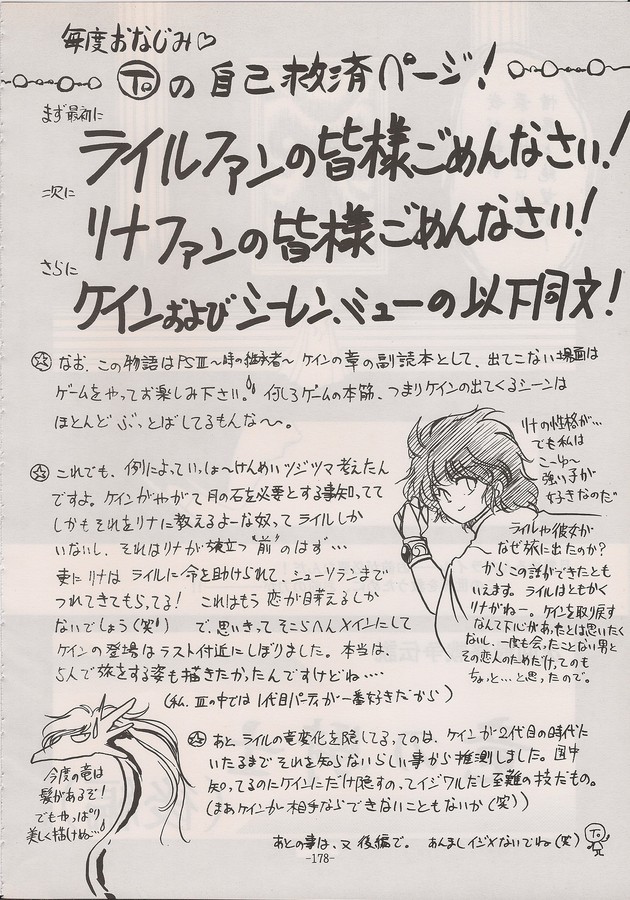 毎度おなじみ♡
Toの自己救済ページ!
まず最初に
ライルファンの皆様ごめんなさい!
次に
リナファンの皆様ごめんなさい!
さらに
ケインおよびシーレン、ミューの以下同文!
☆なお、この物語はPSⅢ〜時の継承者〜ケインの章の副読本として、出てこない場面は
ゲームをやってお楽しみ下さい。何しろゲームの本筋、つまりケインの出てくるシーンは
ほとんどぶっとばしてるもんな〜〜。
リナの性格が…
でも私は
こ〜ゆ〜
強い子が
好きなのだ
☆これでも、例によっていっしょ〜けんめいツジツマ考えたん
ですよ。ケインがやがて月の石を必要とする事知ってて
しかもそれをリナに教えるよーな奴ってライルしか
いないし、それはリナが旅立つ"前"のはず…
更にリナはライルに命を助けられて、ニューソランまで
つれてきてもらってる! これはもう恋が芽えるしか
ないでしょう(笑) で、思いきってそこらへんメインにして
ケインの登場はラスト付近にしぼりました。本当は、
5人で旅をする姿も描きたかったんですけどね…
(私、Ⅲの中では1代目パーティが一番好きだから)
ライルや彼女が
なぜ旅に出たのか?
からこの話ができたとも
いえます。ライルはともかく
リナがねー。ケインを取戻す
なんて下心があったとは思いたく
ないし、一度も会ったことない男と
その恋人のためだけ、てのも
ちょっと…と思ったので。
☆あと、ライルの竜変化を隠してるってのは、ケインが2代目の時代に
いたるまでそれを知らないらしい事から推測しました。国中
知ってるのにケインにだけ隠すの、ってイジワルだし至難の技だもの。
(まあケインが相手ならできないこともないか(笑))
今度の竜は
髪があるぞ!
でもやっぱり
美しく描けぬ…
あとの事は、又後編で。 あんましイジメないでね(笑) To
-178-